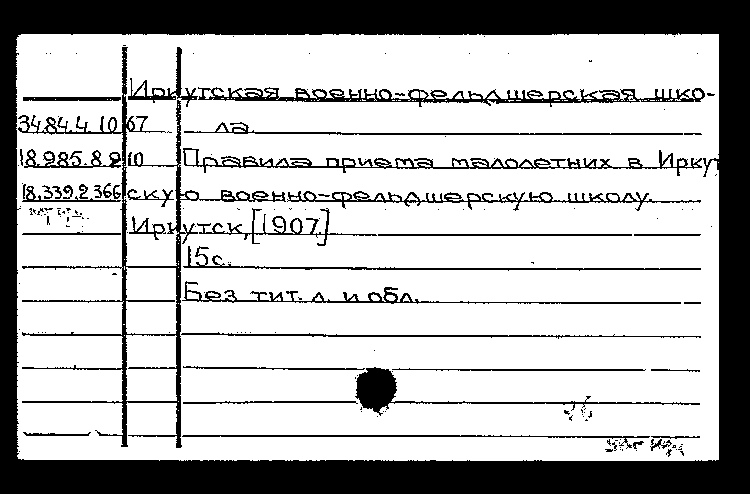 Иркутская военно-фельдшерская шко-
34.84.4.1067 ла.
18.985.8.210 Правила приема малолетних в Иркут
18.339.2.366 скую военно-фельдшерскую школу.
Иркутск, [1907]
15с.
Без тит. л. и обл.
26